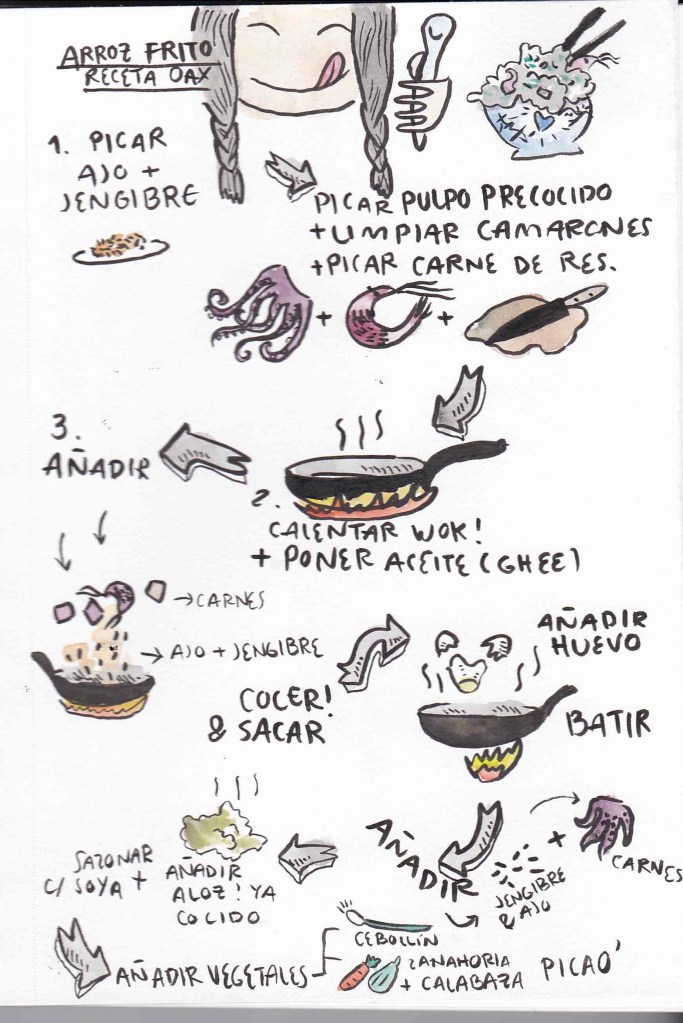 ARROZ FRITO
RECETA OAX
1. PICAR
AJO +
JENGIBRE
PICAR PULPO PRECOCIDO
+ LIMPIAR CAMARONES
+ PICAR CARNE DE RES.
+ +
2.
CALENTAR WOK!
+ PONER ACEITE (GHEE)
3.
AÑADIR
→ CARNES
→ AJO + JENGIBRE
COCER!
& SACAR
AÑADIR
HUEVO
BATIR
AÑADIR
JENGIBRE
& AJO
+
CARNES
AÑADIR
ALOZ! YA
COCIDO
SAZONAR
C/ SOYA +
AÑADIR VEGETALES
CEBOLLÍN
ZANAHORIA
+ CALABAZA
PICAO'